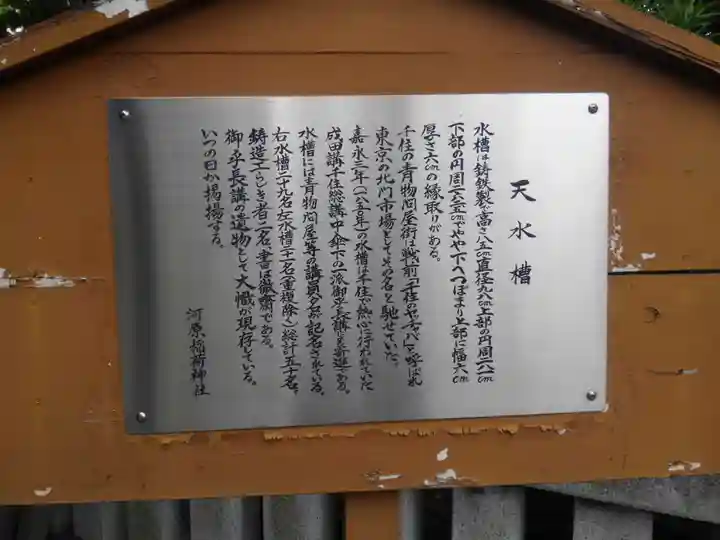 天水槽
水槽は鋳鉄製で高さ八五㎝直径九八㎝上部の円周二八一㎝
下部の円周二八五㎝でやや下へつぼまり上部に幅六㎝
厚さ六㎝の縁取りがある。
千住の青物問屋街は戦前「千住のヤッチャバ」と呼ばれ
東京の北門市場としてその名を馳せていた。
嘉永三年(一八五〇年)の水槽は千住で熱心に行われていた
成田講千住総講中傘下の一派御手長講による寄進である。
水槽には青物問屋等の講員名が記名されている。
右水槽二十九名左水槽二十一名(重複除く)総計五十名。
鋳造工らしき者二名、書は徹齋である。
御手長講の遺物として大幟が現存している。
いつの日か掲揚する。
河原稲荷神社